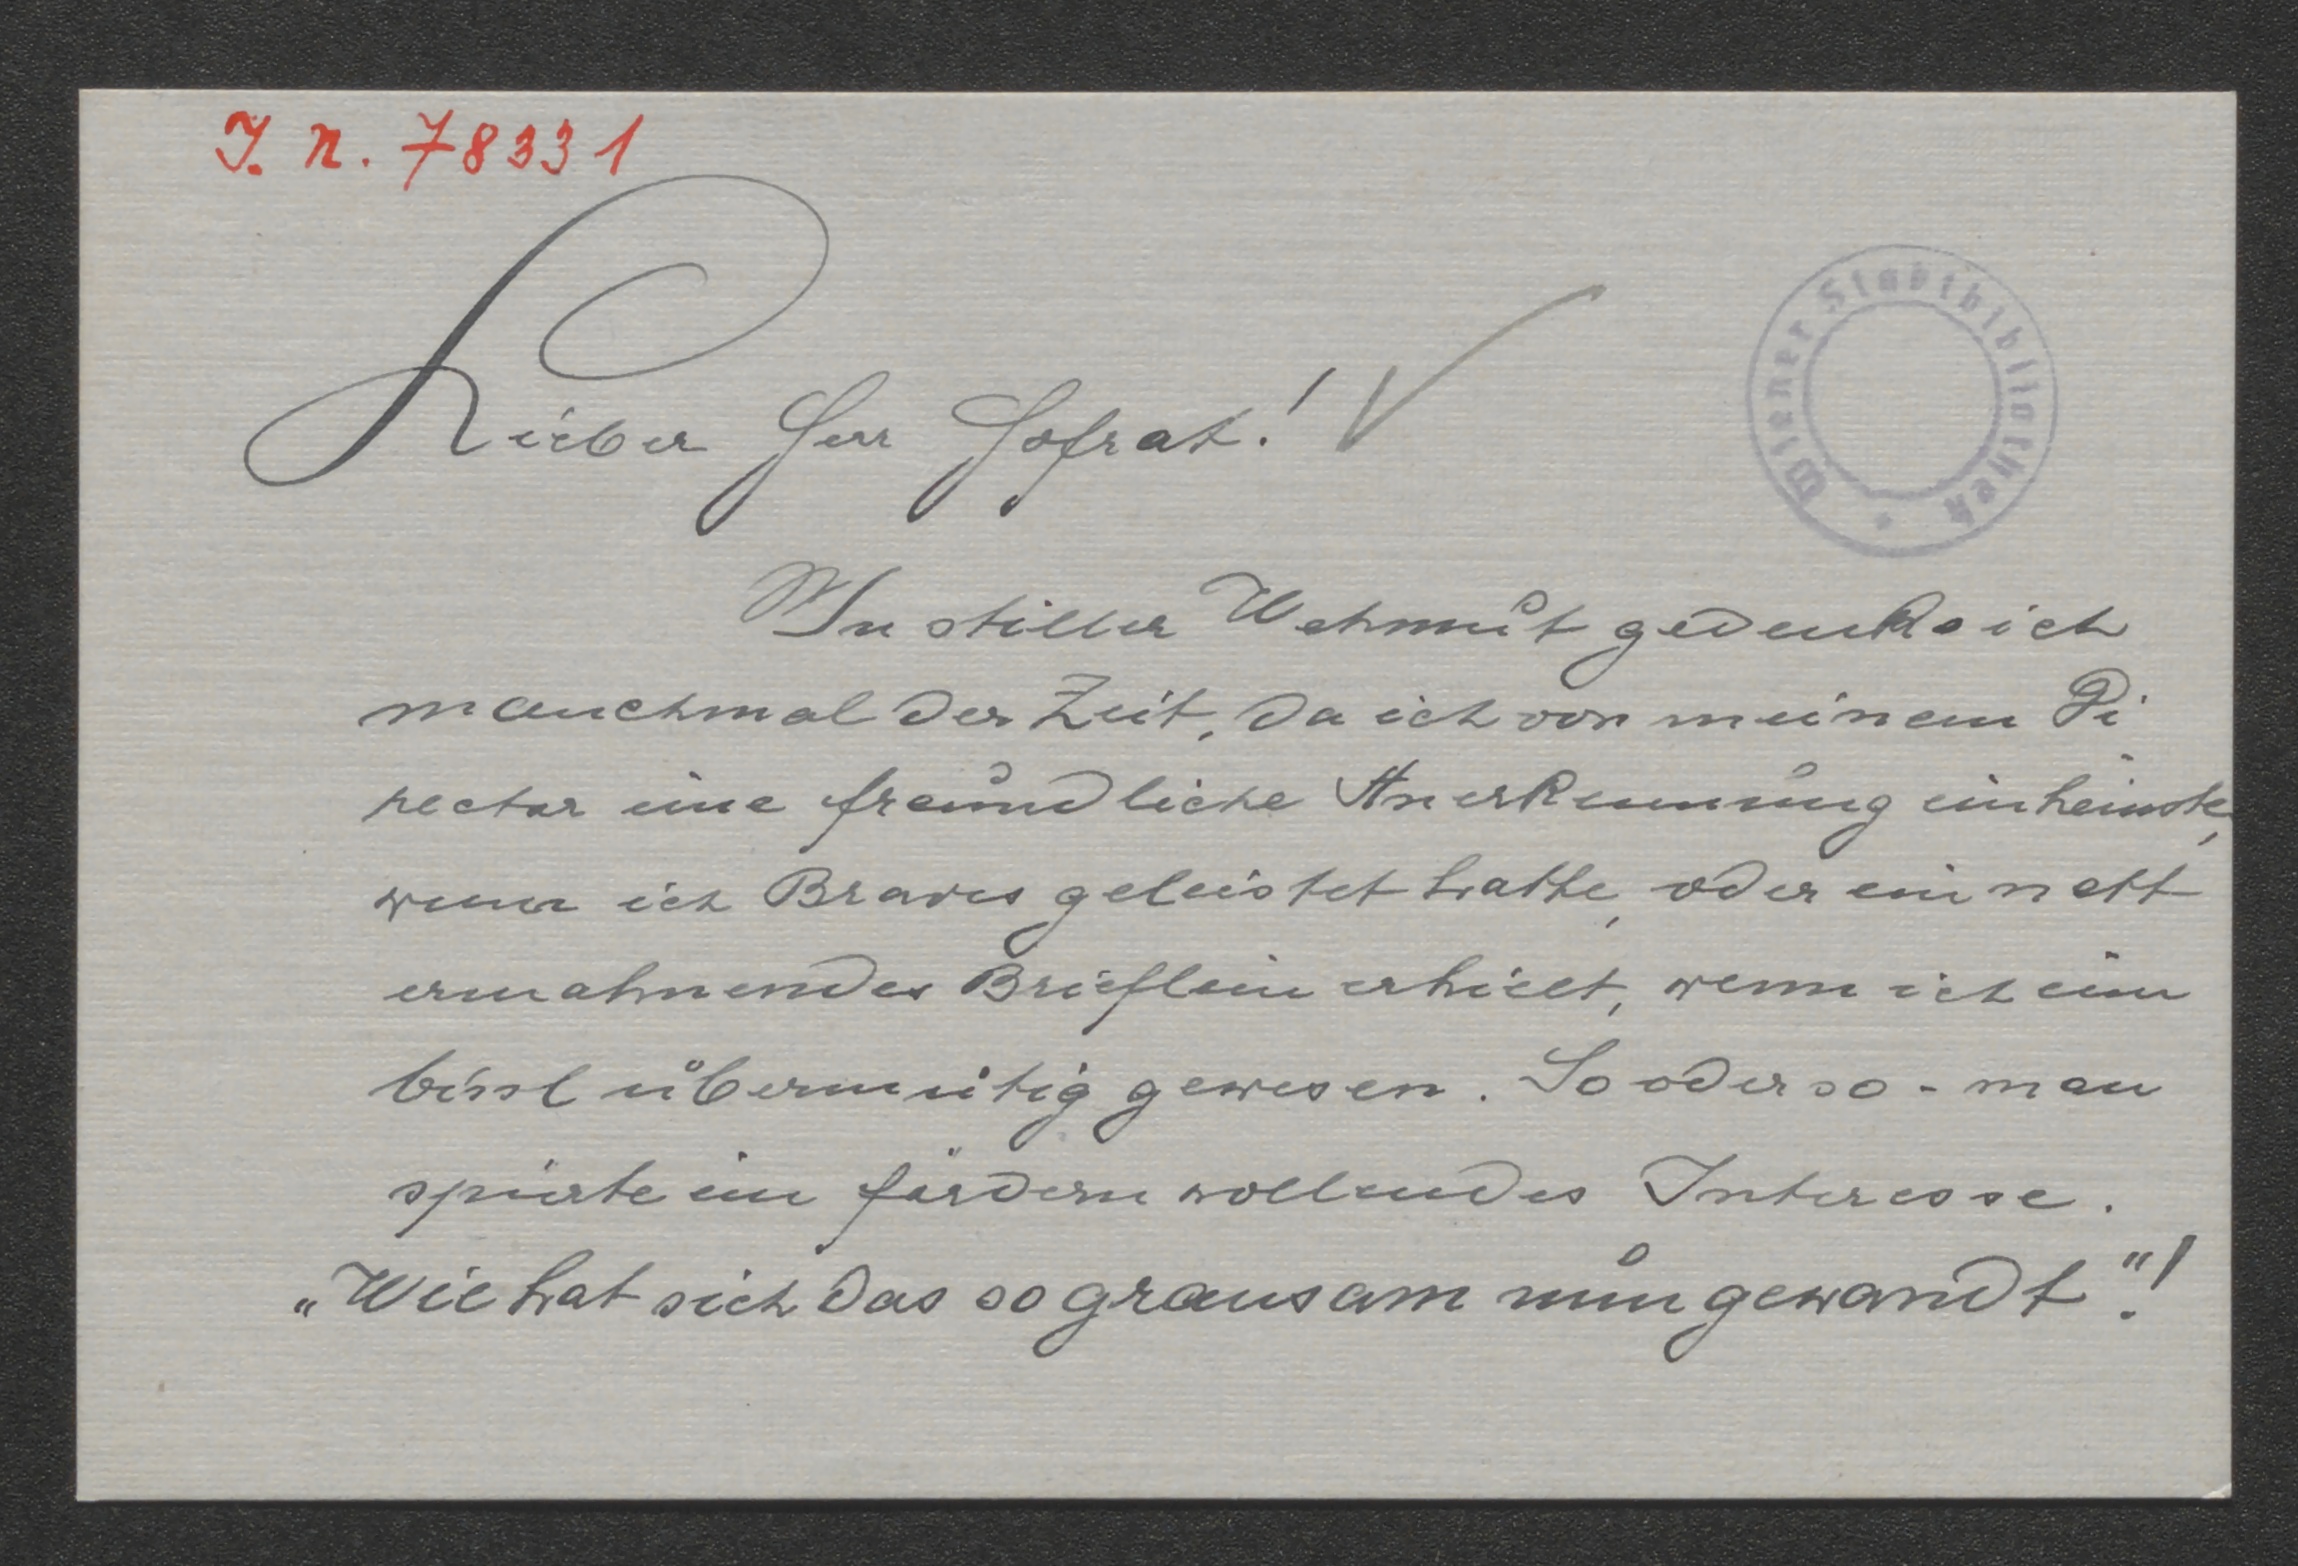 I. N. 78331
Lieber Herr Hofrat!
Wiener Stadtbibliothek
In stiller Wehmut gedenke ich
manchmal der Zeit, da ich von meinem Di
rector eine freundliche Anerkennung einheimste,
wenn ich Braves geleistet hatte, oder ein nett
ermahnendes Brieflein erhielt, wenn ich ein
bissl übermütig gewesen. So oder so - man
spürte ein fördern wollendes Interesse.
„Wie hat sich das so grausam nun gewandt"!